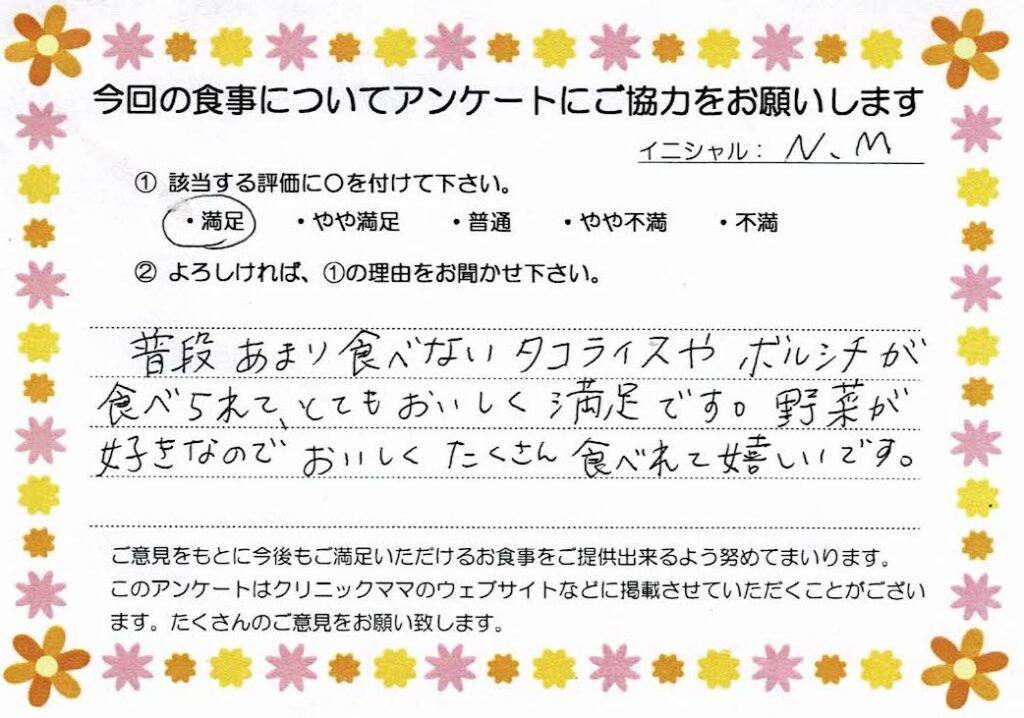 今回の食事についてアンケートにご協力をお願いします
イニシャル： N、M
① 該当する評価に〇を付けて下さい。
・満足 ・やや満足 ・普通 ・やや不満 ・不満
② よろしければ、①の理由をお聞かせ下さい。
普段あまり食べないタコライスやボルシチが
食べられて、とてもおいしく満足です。野菜が
好きなのでおいしくたくさん食べれて嬉しいです。
ご意見をもとに今後もご満足いただけるお食事をご提供出来るよう努めてまいります。
このアンケートはクリニックママのウェブサイトなどに掲載させていただくことがござい
ます。たくさんのご意見をお願い致します。